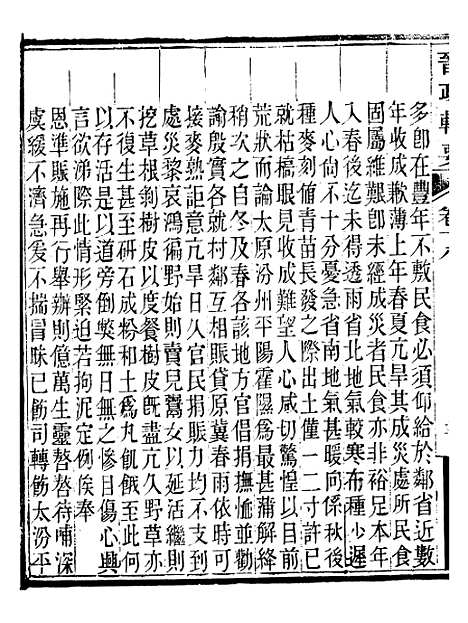 晉政輯要
卷十八
多卽在豐年不敷民食必須仰給於鄰省近數
年收成歉薄上年春夏亢旱其成災處所民食
固屬維艱卽未經成災者民食亦非裕足本年
入春後迄未得透雨省北地氣較寒布種少遲
人心尚不十分憂急省南地氣甚暖向係秋後
種麥刻値靑苗長發之際出土僅一二寸許已
就枯槁眼見收成難望人心咸切驚惶以目前
荒狀而論太原汾州平陽霍隰爲最蒲解絳
稍次之自冬及春各該地方官倡捐撫恤並勸
諭殷實各就村鄰互相賑貸原冀春雨依時可
接麥熟詎意亢旱日久官捐賑力均不支到
處災黎哀鴻徧野始則賣兒鬻女以延活繼則
挖草根剝樹皮以度餐樹皮旣盡亢久野草亦
不復生甚至硏石成粉和土爲丸飢餓至此何
以存活是以道旁倒斃無日無之慘目傷心興
言欲涕際此情形緊迫若拘泥定例俟奉
恩準賑施再行舉辦則億萬生靈嗸嗸待哺深
虞緩不濟急爰不揣冒昧已飭司轉飭太汾平